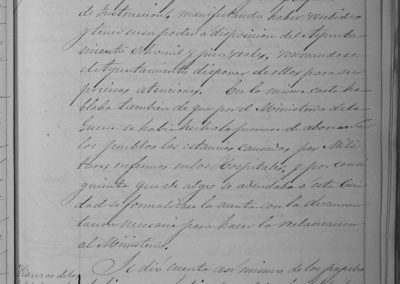 de Instruccion, manifestando haber recibido
y tener en su poder a disposicion del Ayunta
miento
el Ayuntamiento disponer de ellos para su
precisas atenciones. En la misma carta ha
blaba tambien de que por el Ministerio de la
Guerra se habia hecho la promesa de abonar a
los pueblos las estancias causadas por Mili
tares enfermos en los Hospitales, y por consi
guiente que si algo se adeudaba a esta Ciu
dad se formalizara la cuenta con la documen
tacion necesaria para hacer la reclamacion
al Ministerio.
Se dió cuenta asi mismo de los papeles